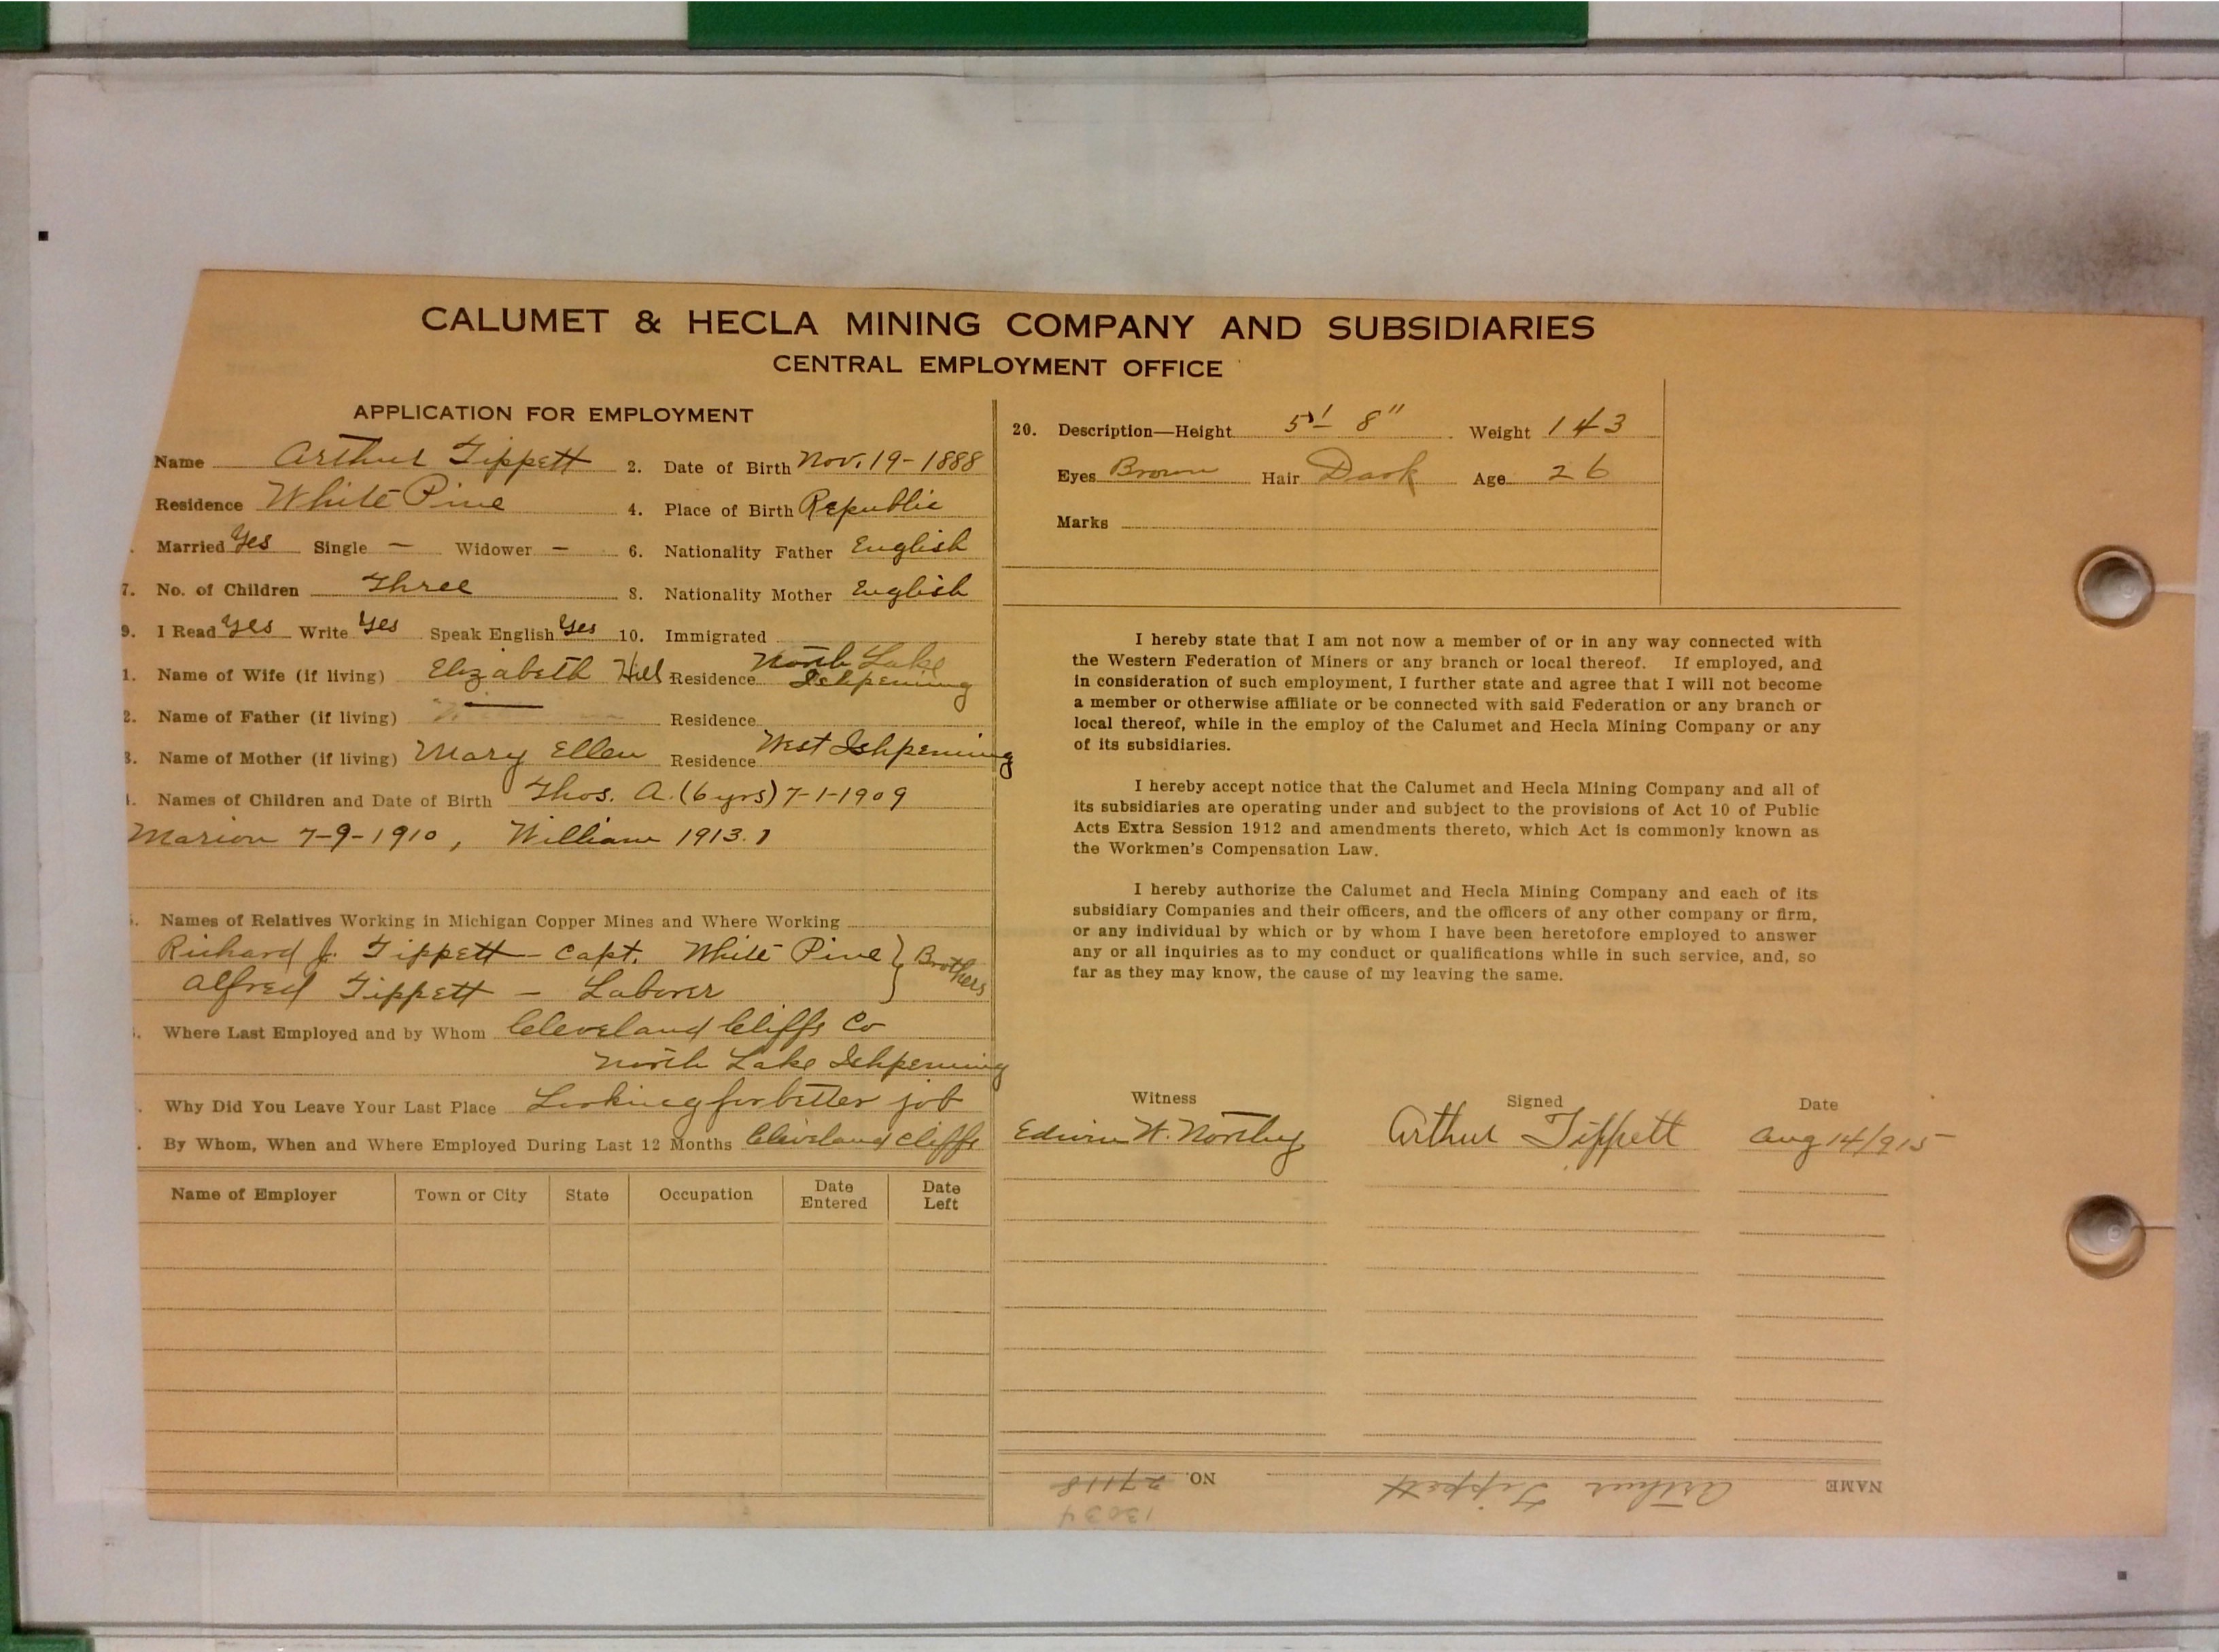 CALUMET & HECLA MINING COMPANY AND SUBSIDIARIES
CENTRAL EMPLOYMENT OFFICE
APPLICATION FOR EMPLOYMENT
Name Arthur Tippett 2. Date of Birth Nov. 19-1888
Residence White Pine 4. Place of Birth Republic
Married Yes Single — Widower — 6. Nationality Father English
7. No. of Children Three 8. Nationality Mother English
9. I Read Yes Write Yes Speak English Yes 10. Immigrated
1. Name of Wife (if living) Elizabeth Hill Residence North Lake Ishpeming
2. Name of Father (if living) — Residence
3. Name of Mother (if living) Mary Ellen Residence West Ishpeming
Names of Children and Date of Birth Thos. A. (6 yrs) 7-1-1909
Marion 7-9-1910, William 1913.
Names of Relatives Working in Michigan Copper Mines and Where Working
Richard J. Tippett - Capt. White Pine } Brothers
Alfred Tippett - Laborer
Where Last Employed and by Whom Cleveland Cliffs Co
North Lake Ishpeming
Why Did You Leave Your Last Place Looking for better job
By Whom, When and Where Employed During Last 12 Months Cleveland Cliffs
Name of Employer Town or City State Occupation Date Entered Date Left
20. Description—Height 5' 8" Weight 143
Eyes Brown Hair Dark Age 26
Marks
I hereby state that I am not now a member of or in any way connected with
the Western Federation of Miners or any branch or local thereof. If employed, and
in consideration of such employment, I further state and agree that I will not become
a member or otherwise affiliate or be connected with said Federation or any branch or
local thereof, while in the employ of the Calumet and Hecla Mining Company or any
of its subsidiaries.
I hereby accept notice that the Calumet and Hecla Mining Company and all of
its subsidiaries are operating under and subject to the provisions of Act 10 of Public
Acts Extra Session 1912 and amendments thereto, which Act is commonly known as
the Workmen's Compensation Law.
I hereby authorize the Calumet and Hecla Mining Company and each of its
subsidiary Companies and their officers, and the officers of any other company or firm,
or any individual by which or by whom I have been heretofore employed to answer
any or all inquiries as to my conduct or qualifications while in such service, and, so
far as they may know, the cause of my leaving the same.
Witness Signed Date
Edwin W. Northey Arthur Tippett Aug 14/915
NAME Arthur Tippett NO. 27118
13034